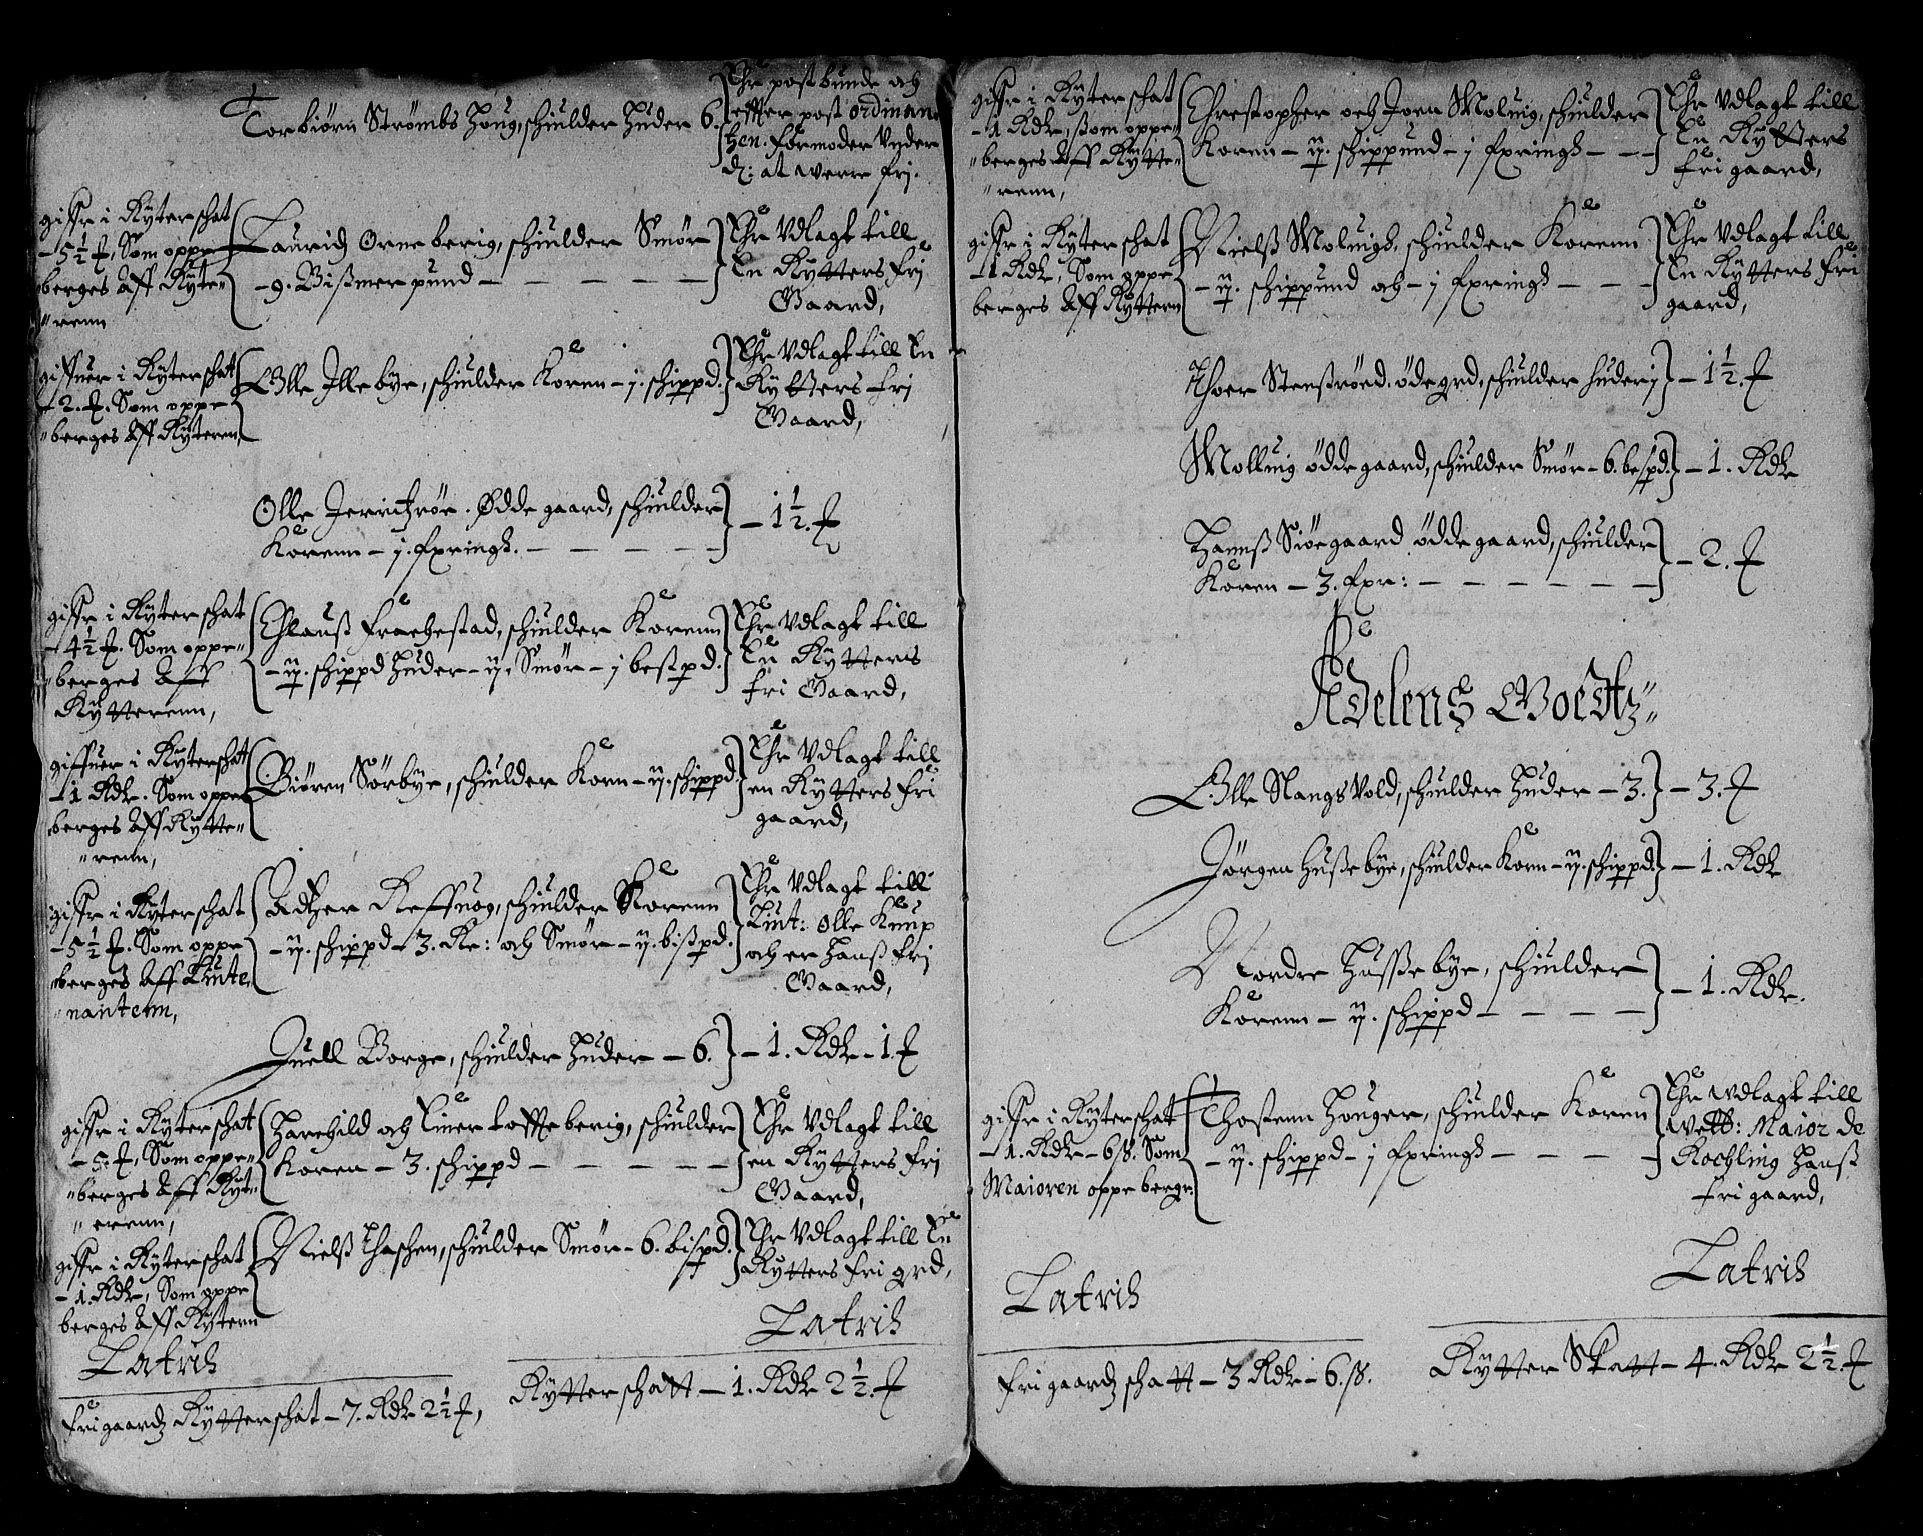 Torbiørn Strömbs Houg, schiulder Huder 6.
Ehr post bunde och
effter post ordinan-
tzen. formoder Vnder
d: at were fri.
giffr i Rÿter schat
- 5½ ƒ, Som oppe
berges Aff Rÿte-
renn
Lauridz Orneberig, schiulder Smör
- 9. Bißmer pund -
Ehr Vdlagt till
En Rÿtters fri
Gaard,
giffuer i Rÿterschatt
- 2. ƒ. Som oppe
berges Aff Rÿteren
Olle Illebÿe, schiulder Koren - j. schippd.
Ehr Vdlagt till En
Rÿtters fri
Gaard,
Olle Jerritzröe. Ødde gaard, schiulder
Korenn - j. fxringh.
- 1½. ƒ
giffr i Rÿterschat
- 4½ ƒ. Som oppe-
berges Aff
Rÿtterenn,
Chlauß Frachestad, schiulder Korenn
- ij. schippd Huder - ij. Smör - j bestpd.
Ehr Vdlagt till
En Rÿtters
fri Gaard,
giffuer i Rÿterschatt
- 1 Rdlr. Som oppe
berges Aff Rÿtte-
renn,
Biören Sörbÿe, schiulder Korn - ij. schippd.
Ehr Vdlagt till
en Rÿtters fri
gaard,
giffr i Rÿterschat
- 5½ ƒ. Som oppe
berges Aff Liute,
nantenn,
Adtzer Reffnög, schiulder Korenn
- ij. schippd - 3. Re: och Smör - ij. bißpd.
Ehr Vdlagt till
Liut: Olle Knup
och er Hanß fri
Gaard,
Juell Borge, schiulder Huder - 6.
- 1. Rdlr - 1. ƒ
giffr i Rÿterschatt
- 5. ƒ, Som oppe-
berges Aff Rÿt-
erenn,
Harchild och Einer toffteberig, schiulder
Koren - 3. schippd
Ehr Vdlagt till
en Rÿtters fri
Gaard,
giffr i Rÿterschat
- 1. Rdlr, Som oppe
berges Aff Rÿtern
Nielß Thaschen, schiulder Smör - 6. bispd.
Ehr Vdlagt till En
Rÿtters fri grd,
Latris
Latris
frigaardz Rÿtterschat - 7. Rdlr 2½ ƒ,
Rÿtterschatt - 1. Rdlr 2½. ƒ
giffr i Rÿterschat
- 1 Rdlr, ßom oppe-
berges Aff Rÿtte-
renn,
Chrestopher och Joen Moluig, schiulder
Koren - ij. schippund - j fxringh
Ehr Vdlagt till
En Rÿtters
fri gaard,
giffr i Rÿterschat
- 1 Rdlr, Som oppe
berges Aff Rÿttern
Nielß Moluigh, schiulder Korenn
- ij. schippund och - j fxringh
Ehr Vdlagt till
En Rÿtters fri
gaard,
Thoer Stenßröed. öde grd, schiulder huder j
- 1½. ƒ
Molluig ödde gaard, schiulder Smör - 6. bespd.
- 1. Rdlr
Hannß Siöegaard ödde gaard, schiulder
Koren - 3. fxr:
- 2. ƒ
Adelens Goedtz
Olle Slangsvold, schiulder Huder - 3.
- 3. ƒ
Jörgen Hußebÿe, schiulder Korn - ij. schippd.
- 1. Rdlr
Nordre Hussebÿe, schiulder
Korenn - ij. schippd
- 1. Rdlr.
giffr i Rÿterschat
- 1. Rdlr - 6 ß. Som
Maioren oppe bergr.
Thostenn Houger, schiulder Koren
- ij. schippd - j fxringh
Ehr Vdlagt till
Welb: Maior de
Rochling Hanß
fri gaard,
Latris
Latris
frigaardz schatt - 3 Rdlr - 6. ß.
Rÿtter Skatt - 4. Rdlr 2½. ƒ